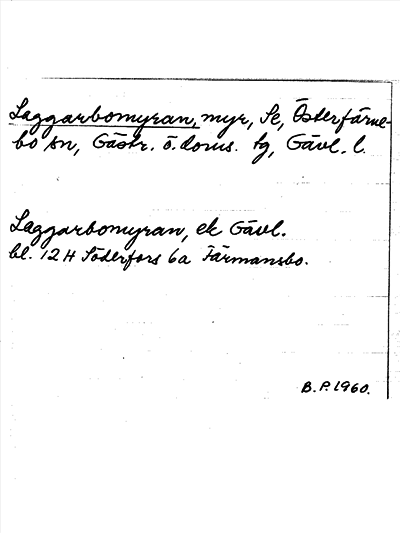 Laggarbomyran, myr, Se, Österfärne-
bo sn, Gästr. ö. doms. tg, Gävl. l.
Laggarbomyran, ek Gävl.
bl. 12 H Söderfors 6a Färmansbo.
B.P. 1960.